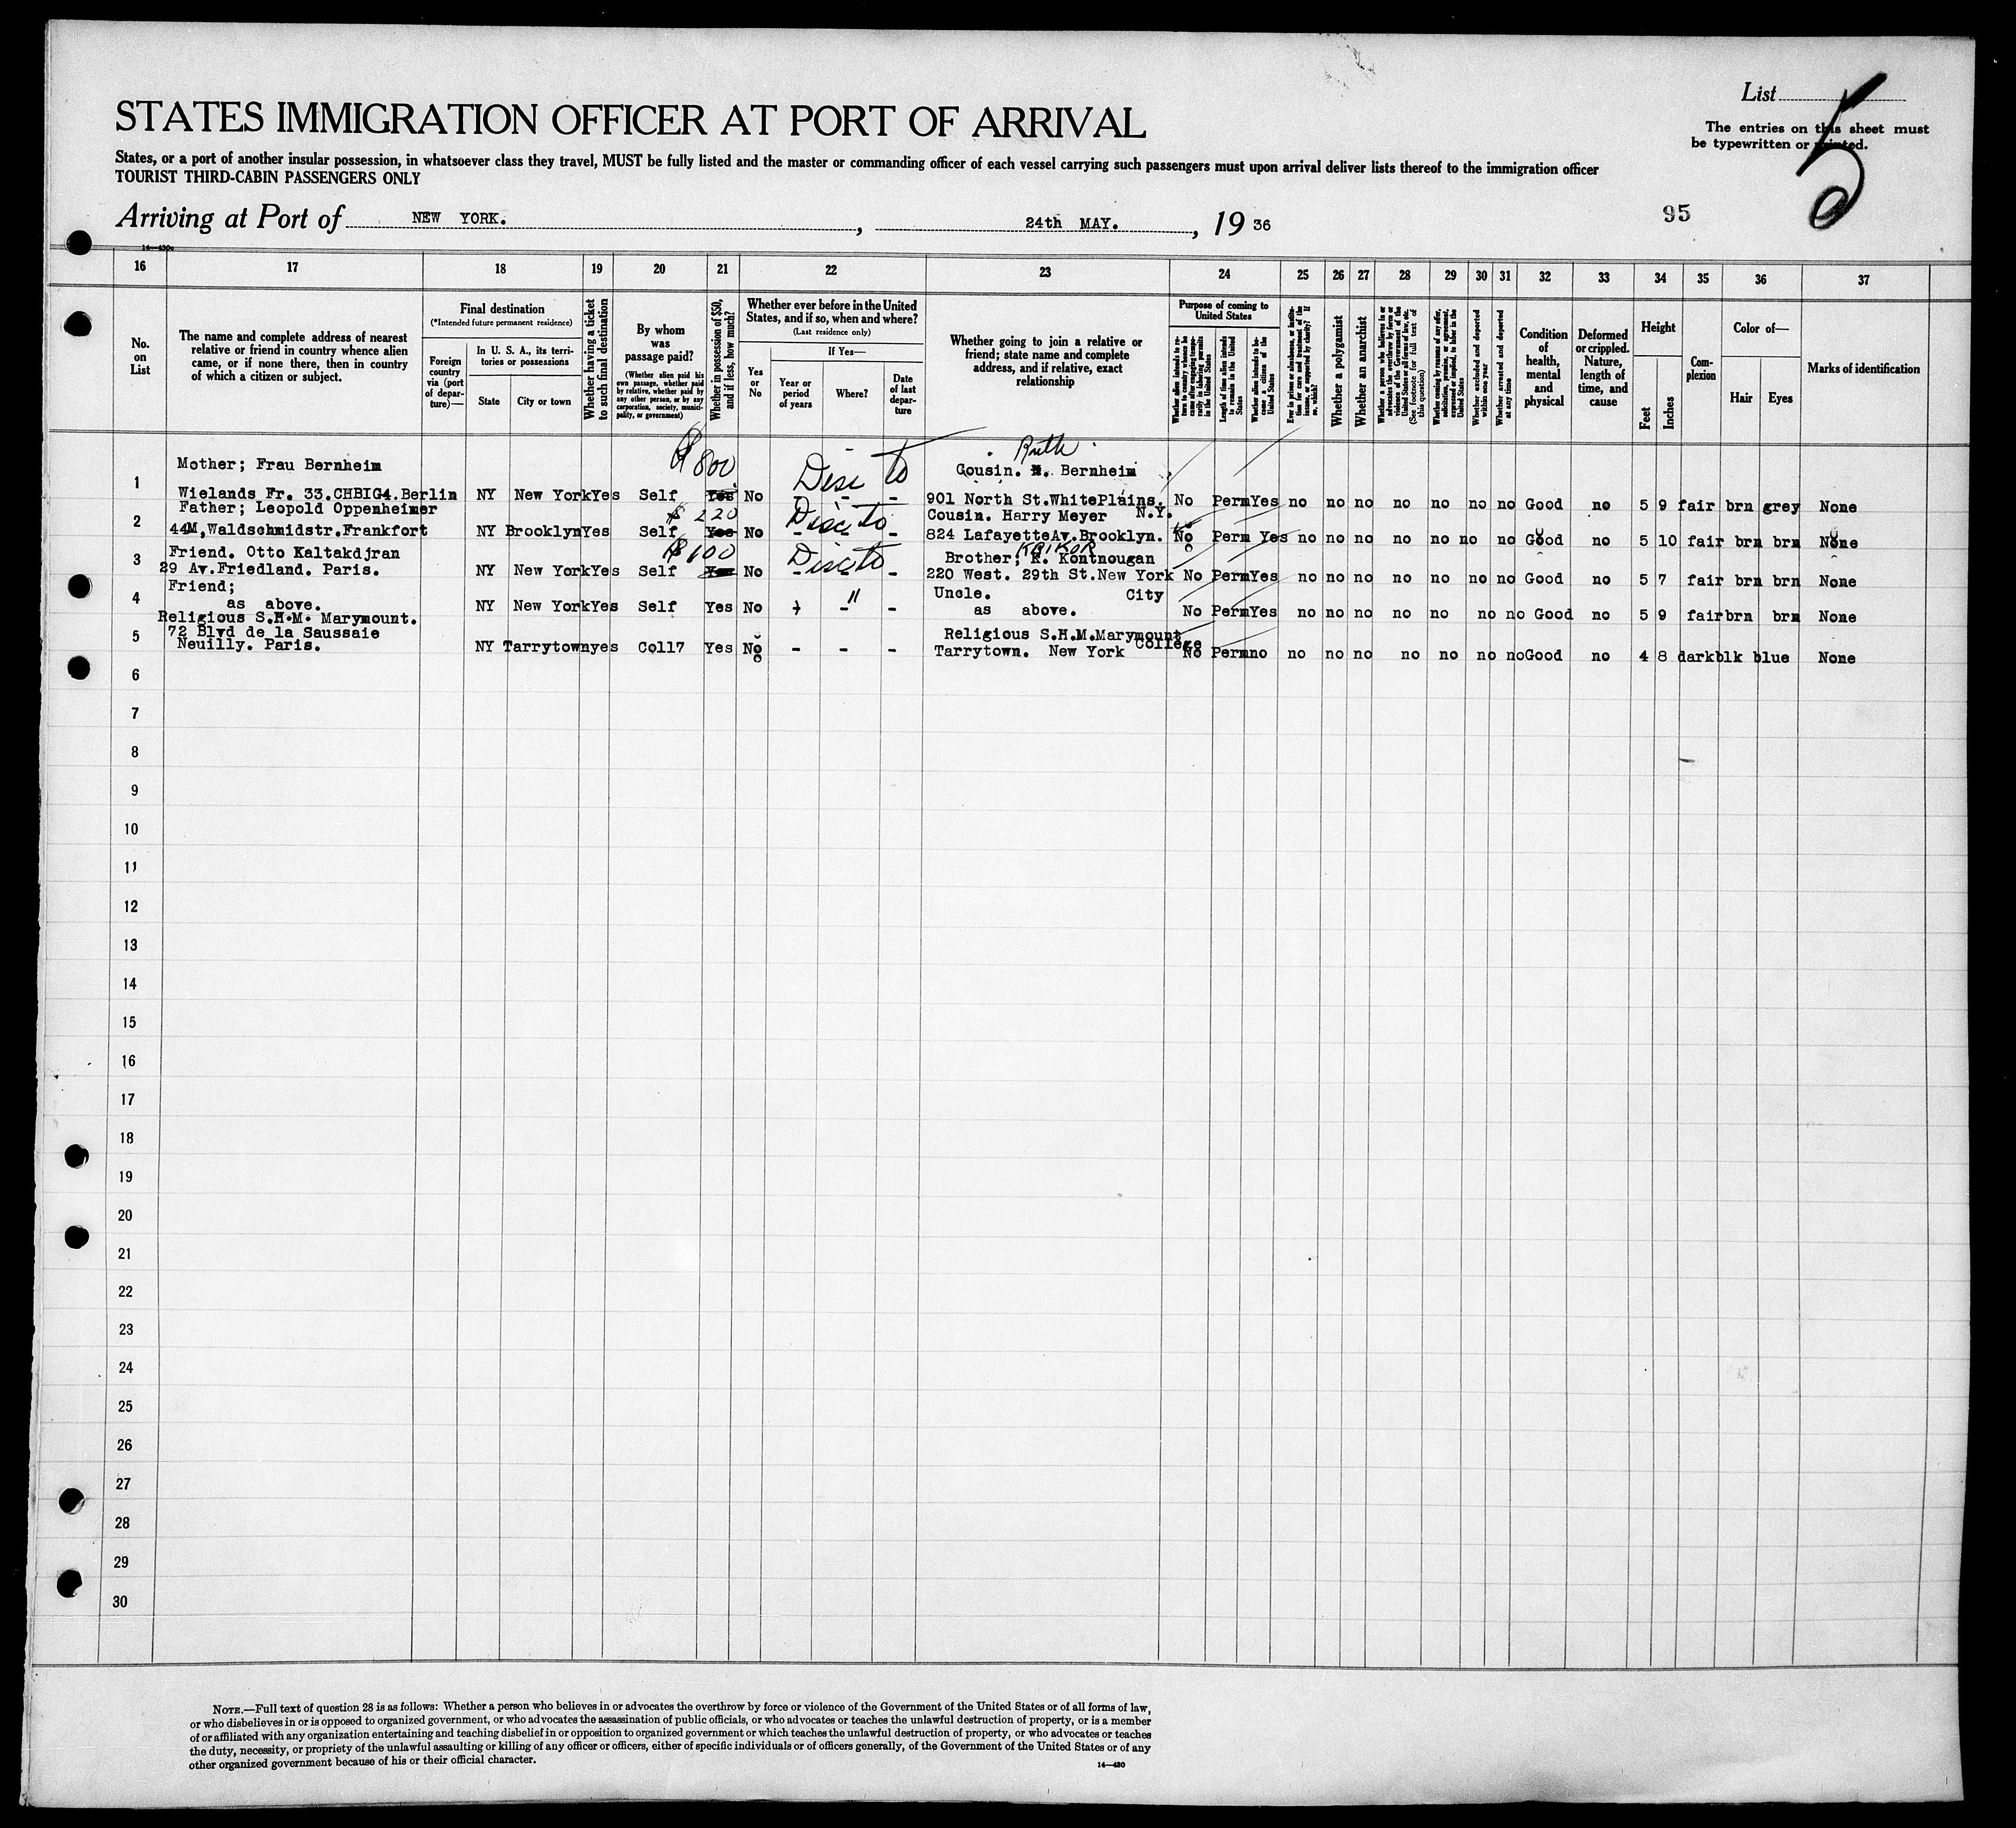 List 5
STATES IMMIGRATION OFFICER AT PORT OF ARRIVAL
The entries on this sheet must
be typewritten or printed.
States, or a port of another insular possession, in whatsoever class they travel, MUST be fully listed and the master or commanding officer of each vessel carrying such passengers must upon arrival deliver lists thereof to the immigration officer
TOURIST THIRD-CABIN PASSENGERS ONLY
Arriving at Port of NEW YORK. , 24th MAY. , 19 36
95
16 17 18 19 20 21 22 23 24 25 26 27 28 29 30 31 32 33 34 35 36 37
No. on List
The name and complete address of nearest relative or friend in country whence alien came, or if none there, then in country of which a citizen or subject.
Final destination
(*Intended future permanent residence)
Foreign country via (port of departure)—
In U. S. A., its territories or possessions
State
City or town
Whether having a ticket to such final destination
By whom was passage paid?
(Whether alien paid his own passage, whether paid by relative, whether paid by any other person, or by any corporation, society, municipality, or government)
Whether in possession of $50, and if less, how much?
Whether ever before in the United States, and if so, when and where?
(Last residence only)
Yes or No
If Yes—
Year or period of years
Where?
Date of last departure
Whether going to join a relative or friend; state name and complete address, and if relative, exact relationship
Purpose of coming to United States
Whether alien intends to return to country whence he came after engaging temporarily in laboring pursuits in the United States
Length of time alien intends to remain in the United States
Whether alien intends to become a citizen of the United States
Ever in prison or almshouse, or institution for care and treatment of the insane, or supported by charity? If so, which?
Whether a polygamist
Whether an anarchist
Whether a person who believes in or advocates the overthrow by force or violence of the Government of the United States or all forms of law, etc. (See footnote for full text of this question)
Whether coming by reasons of any offer, solicitation, promise, or agreement, expressed or implied, to labor in the United States
Whether excluded and deported within one year
Whether arrested and deported at any time
Condition of health, mental and physical
Deformed or crippled. Nature, length of time, and cause
Height
Feet
Inches
Complexion
Color of—
Hair
Eyes
Marks of identification
1 Mother; Frau Bernheim $800 Ruth Cousin. Bernheim
Wielands Fr. 33.CHBIG4.Berlin NY New York Yes Self Yes No - - - 901 North St.WhitePlains. N.Y. No Perm Yes no no no no no no no Good no 5 9 fair brn grey None
2 Father; Leopold Oppenheimer $220 Cousin. Harry Meyer
44M,Waldschmidstr.Frankfort NY Brooklyn Yes Self Yes No - - - 824 LafayetteAv.Brooklyn. No Perm Yes no no no no no no no Good no 5 10 fair brn brn None
3 Friend. Otto Kaltakdjran $100 KRIKOR Brother; K. Kontnougan
29 Av.Friedland. Paris. NY New York Yes Self Yes No - - - 220 West. 29th St.New York City No Perm Yes no no no no no no no Good no 5 7 fair brn brn None
4 Friend; Uncle.
as above. NY New York Yes Self Yes No - " - - as above. No Perm Yes no no no no no no no Good no 5 9 fair brn brn None
Religious S.H.M. Marymount.
5 72 Blvd de la Saussaie Religious S.H.M.Marymount College
Neuilly. Paris. NY Tarrytown yes Coll7 Yes No - - - Tarrytown. New York No Perm no no no no no no no no Good no 4 8 dark blk blue None
6
7
8
9
10
11
12
13
14
15
16
17
18
19
20
21
22
23
24
25
26
27
28
29
30
NOTE.—Full text of question 28 is as follows: Whether a person who believes in or advocates the overthrow by force or violence of the Government of the United States or of all forms of law,
or who disbelieves in or is opposed to organized government, or who advocates the assassination of public officials, or who advocates or teaches the unlawful destruction of property, or is a member
of or affiliated with any organization entertaining and teaching disbelief in or opposition to organized government or which teaches the unlawful destruction of property, or who advocates or teaches
the duty, necessity, or propriety of the unlawful assaulting or killing of any officer or officers, either of specific individuals or of officers generally, of the Government of the United States or of any
other organized government because of his or their official character.
14—430